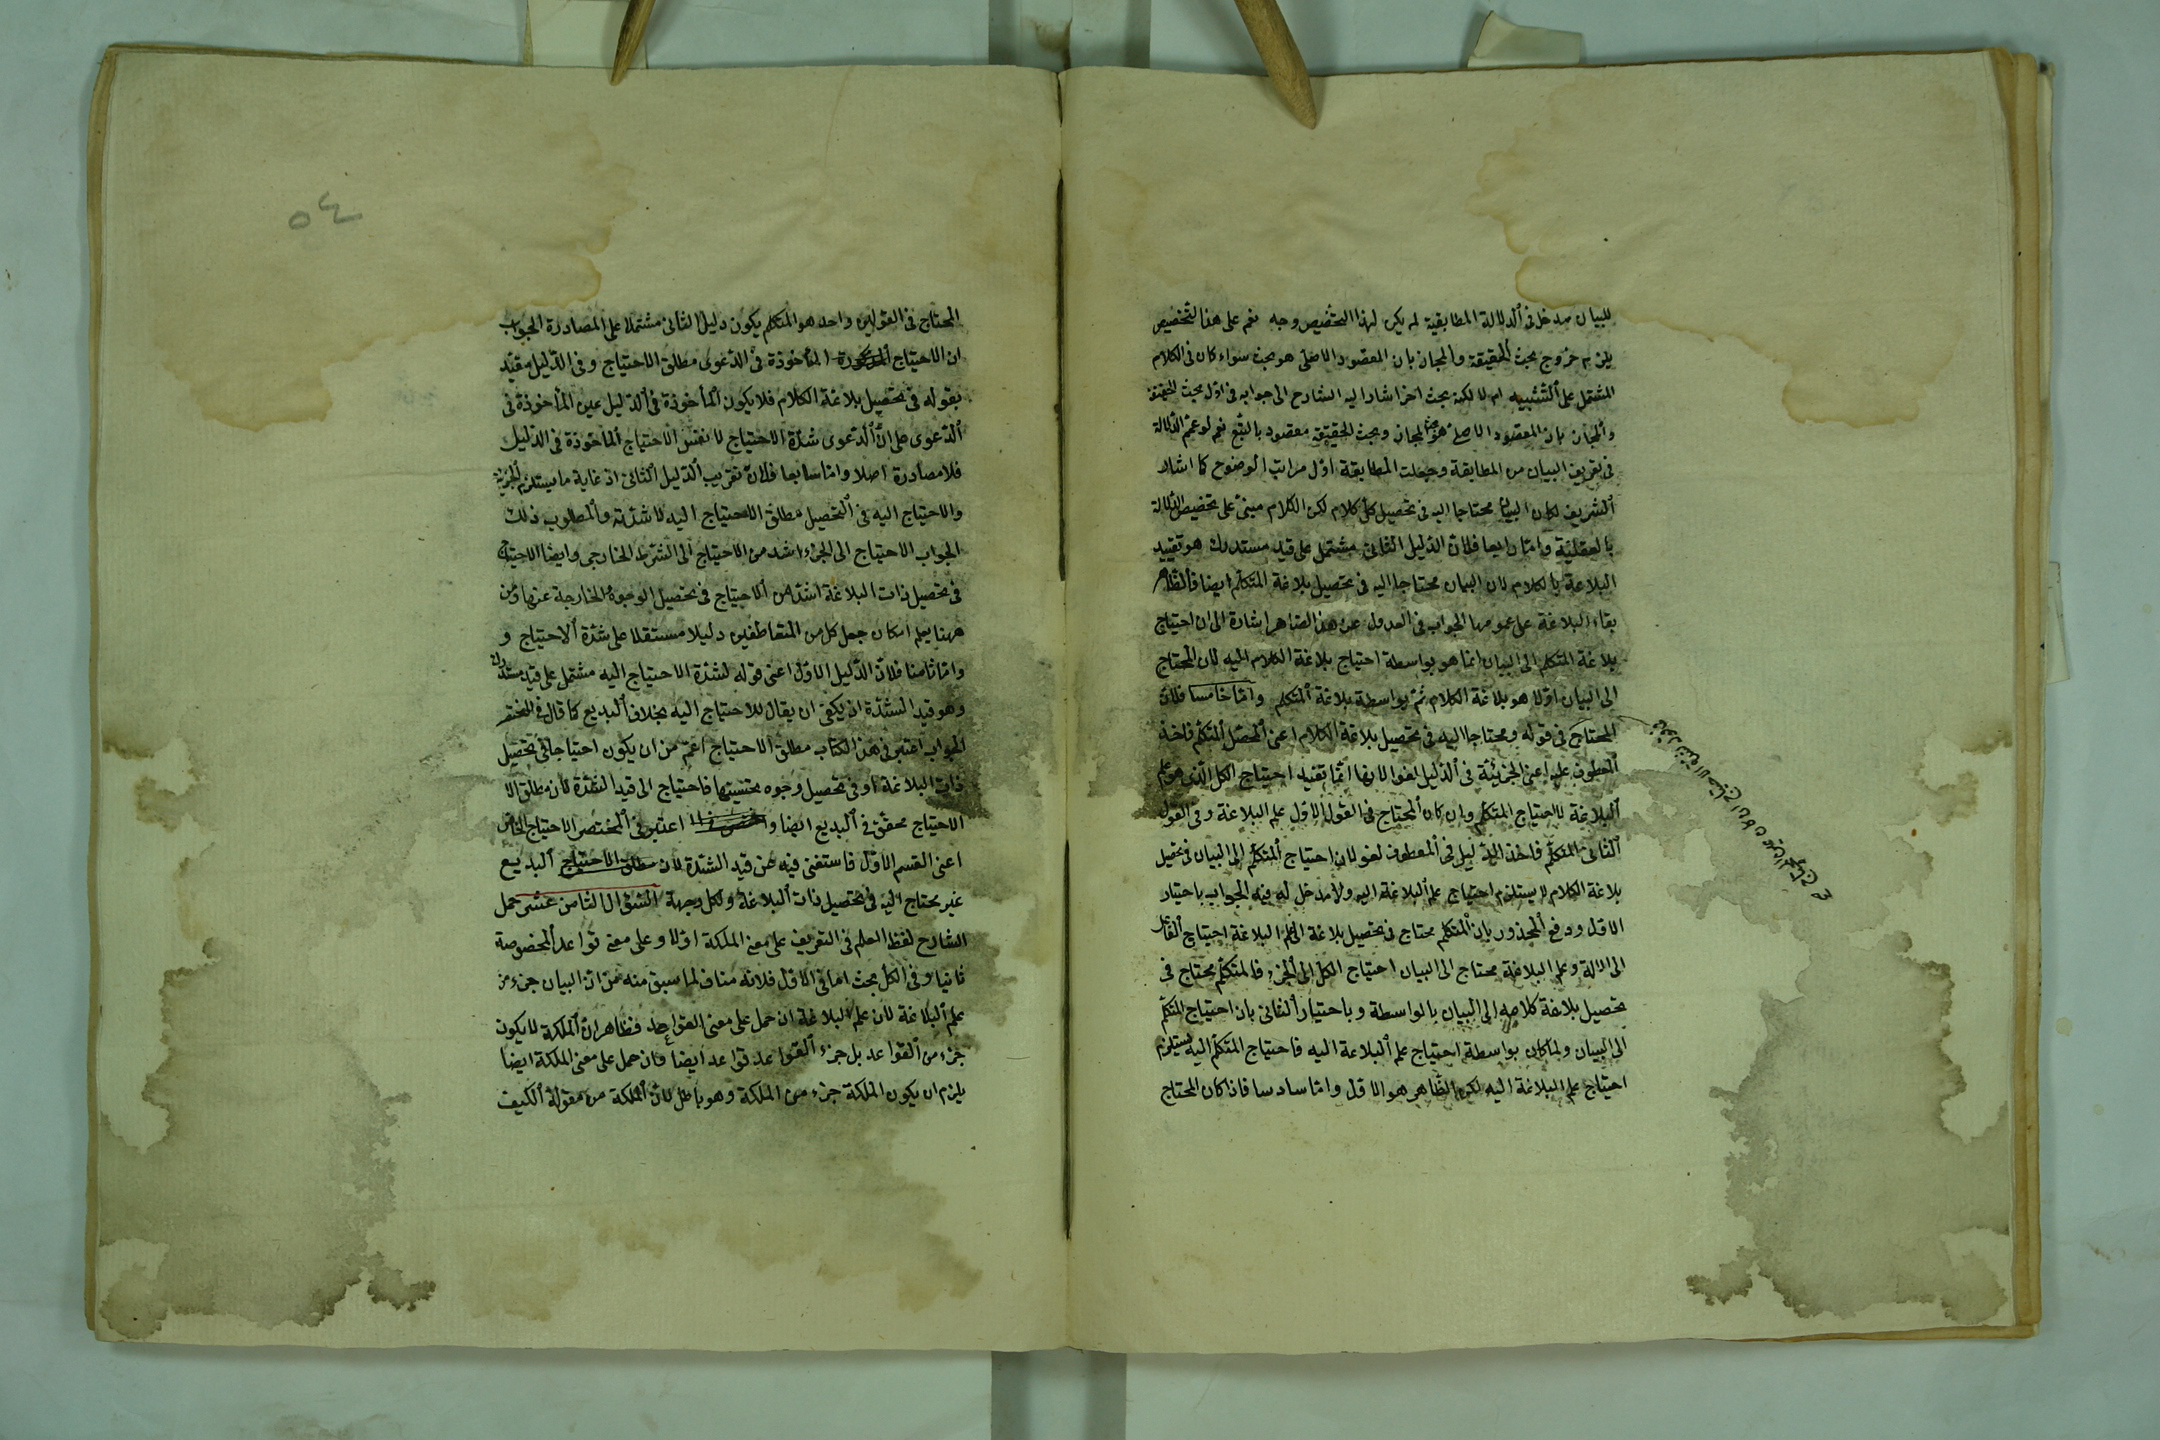 للبيان مدخل في الدلالة المطابقية لم يكن لهذا التخصيص وجه نعم على هذا التخصيص
يلزم خروج بحث الحقيقة والمجاز بان المقصود الاصلى هو بحث سواء كان في الكلام
المشتمل على التشبيه ام لا لكنه بحث اخر اشار اليه الشارح الى جوابه في اول بحث الحقيقة
والمجاز بان المقصود الاصلى هو بحث المجاز وبحث الحقيقة مقصود بالتبع نعم لو عمم الدلالة
في تعريف البيان من المطابقة وجعلت المطابقة اول مراتب الوضوح كما اشار
الشريف لكان البيان محتاجا اليه في تحصيل كل كلام لكن الكلام مبنى على تخصيص الدلالة
بالعقلية واما رابعا فلان الدليل الثانى مشتمل على قيد مستدرك هو تقييد
البلاغة بالكلام لان البيان محتاجا اليه في تحصيل بلاغة المتكلم ايضا فالظاهر
بقاء البلاغة على عمومها الجواب في العدول عن هذا الظاهر اشارة الى ان احتياج
بلاغة المتكلم الى البيان انما هو بواسطة احتياج بلاغة الكلام اليه لان المحتاج
الى البيان اولا هو بلاغة الكلام ثم بواسطة بلاغة المتكلم واما خامسا فلان
المحتاج في قوله ومحتاجا اليه في تحصيل بلاغة الكلام اعنى المحصل المتكلم فاخذ
المعطوف عليه اعنى الجزئية في الدليل لغو لانها انما تفيد احتياج الكل الذى هو علم
البلاغة لا احتياج المتكلم وان كان المحتاج في القول الاول علم البلاغة وفي القول
الثانى المتكلم فاخذ الدليل في المعطوف لغو لان احتياج المتكلم الى البيان في تحصيل
بلاغة الكلام لا يستلزم احتياج علم البلاغة اليه ولا مدخل له فيه الجواب باختيار
الاول ودفع المحذور بان المتكلم محتاج في تحصيل بلاغة الى علم البلاغة احتياج الفاعل
الى الالة وعلم البلاغة محتاج الى البيان احتياج الكل الى الجزء فالمتكلم محتاج في
تحصيل بلاغة كلامه الى البيان بالواسطة وباختيار الثانى بان احتياج المتكلم
الى البيان ولما كان بواسطة احتياج علم البلاغة اليه فاحتياج المتكلم اليه يستلزم
احتياج علم البلاغة اليه لكن الظاهر هو الاول واما سادسا فاذا كان المحتاج
٥٤
المحتاج في القولين واحد هو المتكلم يكون دليل الثانى مشتملا على المصادرة الجواب
ان الاحتياج المذكورة المأخوذة في الدعوى مطلق الاحتياج وفي الدليل مقيد
بقوله في تحصيل بلاغة الكلام فلا يكون المأخوذة في الدليل عين المأخوذة في
الدعوى على ان الدعوى شدة الاحتياج لا نفس الاحتياج المأخوذة في الدليل
فلا مصادرة اصلا واما سابعا فلان تقريب الدليل الثانى اذ غاية ما يستلزم الجزئية
والاحتياج اليه في التحصيل مطلق الاحتياج اليه لا شدته والمطلوب ذلك
الجواب الاحتياج الى الجزء اشد من الاحتياج الى الشرط الخارجى وايضا الاحتياج
في تحصيل ذات البلاغة اشد من الاحتياج في تحصيل الوجوه الخارجة عنها ومن
ههنا يعلم امكان جعل كل من المتعاطفين دليلا مستقلا على شدة الاحتياج و
واما ثامنا فلان الدليل الاول اعنى قوله لشدة الاحتياج اليه مشتمل على قيد مستدرك
وهو قيد الشدة اذ يكفى ان يقال للاحتياج اليه بخلاف البديع كما قال في المختصر
الجواب اعتبر في هذا الكتاب مطلق الاحتياج اعم من ان يكون احتياجا في تحصيل
ذات البلاغة او في تحصيل وجوه تحسينها فاحتياج الى قيد الشدة لان مطلق الا
الاحتياج محقق في البديع ايضا واعتبر في المختصر الاحتياج الخاص
اعنى القسم الاول فاستغنى فيه عن قيد الشدة لان مطلق الاحتياج البديع
غير محتاج اليه في تحصيل ذات البلاغة ولكل وجهة السؤال الثامن عشر حمل
الشارح لفظ العلم في التعريف على معنى الملكة اولا وعلى معنى قواعد المخصوصة
ثانيا وفي الكل بحث اما في الاول فلانه مناف لما سبق منه من ان البيان جزء من
علم البلاغة لان علم البلاغة ان حمل على معنى القواعد فظاهر ان الملكة لا يكون
جزء من القواعد بل جزء القواعد قواعد ايضا وان حمل على معنى الملكة ايضا
يلزم ان يكون الملكة جزء من الملكة وهو باطل لان الملكة من مقولة الكيف